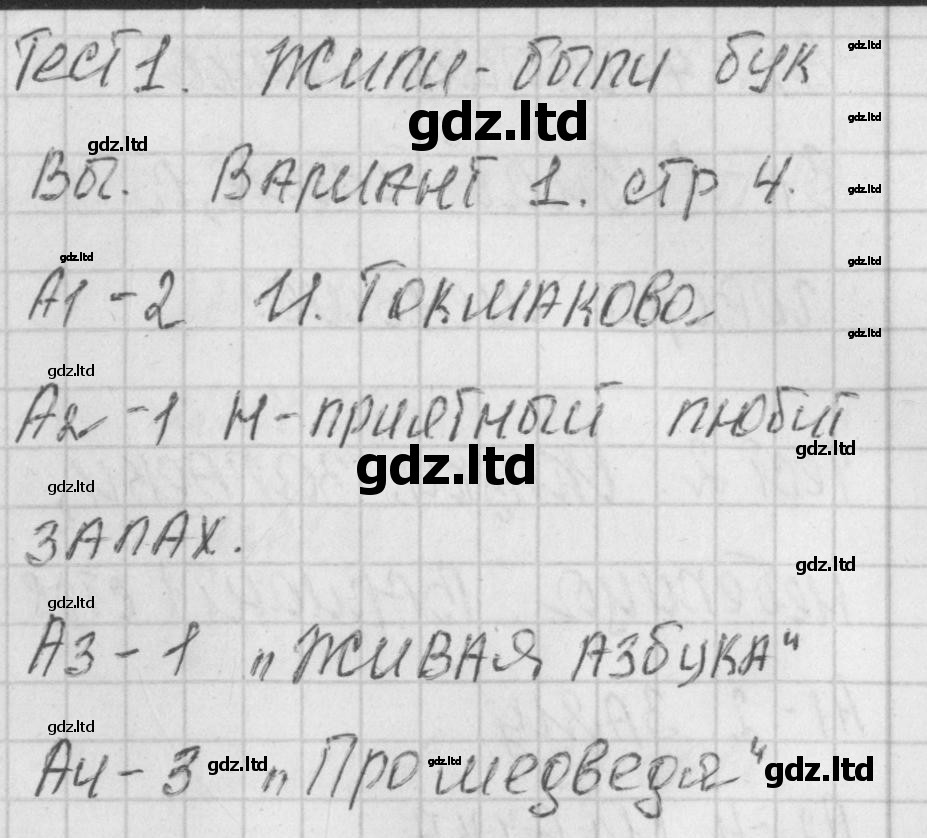 Тест 1. Жили-были бук
gdz.ltd
gdz.ltd
gdz.ltd
gdz.ltd
Вы. Вариант 1. стр 4.
gdz.ltd
gdz.ltd
gdz.ltd
А1 - 2 И. Токмакова
gdz.ltd
gdz.ltd
А2 - 1 н-приятный любит
gdz.ltd
gdz.ltd
gdz.ltd
запах.
gdz.ltd
gdz.ltd
А3 - 1 „Живая азбука"
gdz.ltd
А4 - 3 gdz.ltd „Про медведя" gdz.ltd
gdz.ltd